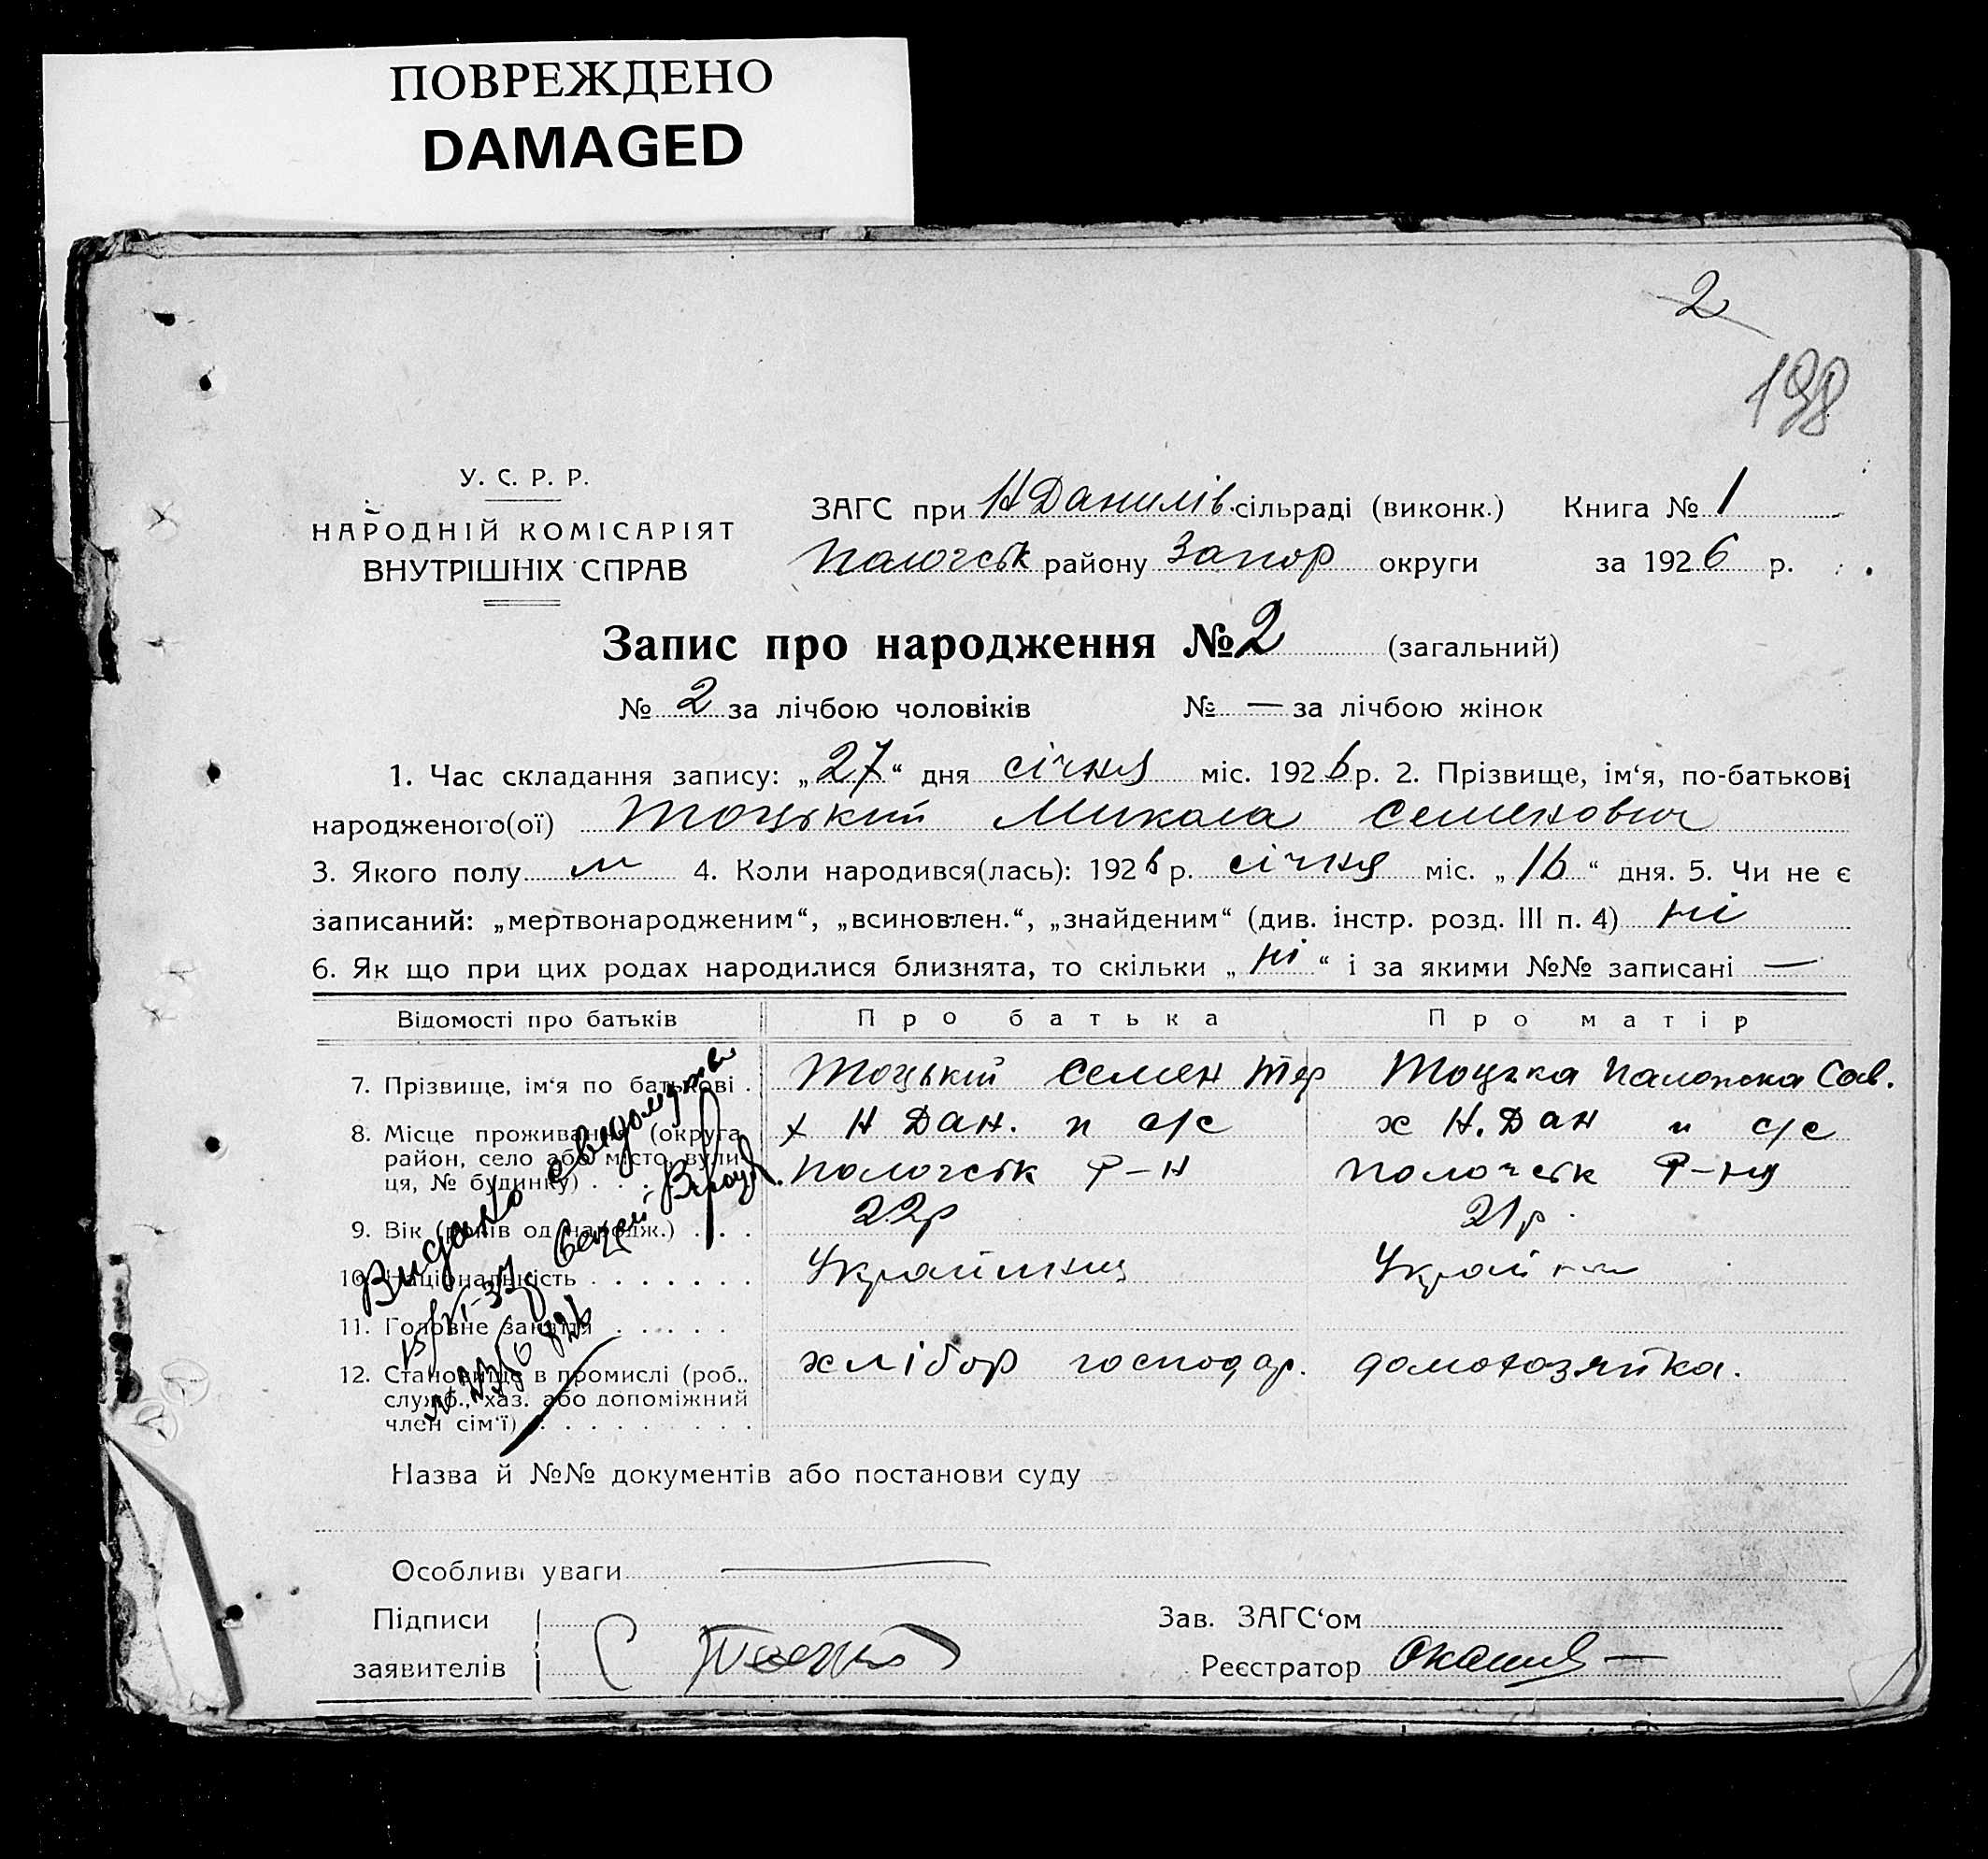 ПОВРЕЖДЕНО
DAMAGED
2
198
У. С. Р. Р.
НАРОДНІЙ КОМІСАРІЯТ
ВНУТРІШНІХ СПРАВ
ЗАГС при Н Данилів. сільраді (виконк.) Книга № 1
Пологськ району Запор округи за 1926 р.
Запис про народження № 2 (загальний)
№ 2 за лічбою чоловіків № — за лічбою жінок
1. Час складання запису: „27“ дня січня міс. 1926 р. 2. Прізвище, ім‘я, по-батькові
народженого(ої) Тоцький Микола Семенович
3. Якого полу м 4. Коли народився(лась): 1926 р. січня міс. „16“ дня. 5. Чи не є
записаний: „мертвонародженим“, „всиновлен.“, „знайденим“ (див. інстр. розд. III п. 4) ні
6. Як що при цих родах народилися близнята, то скільки „ні“ і за якими №№ записані —
Відомості про батьків Про батька Про матір
7. Прізвище, ім‘я по батькові . Тоцький Семен Тер Тоцька Сав.
8. Місце проживання (округа, х Н Дан. с/с х Н. Дан с/с
район, село або місто, вули-
ця, № будинку) . . . Пологськ Р-н Пологськ Р-ну
9. Вік (років од народж.) . . . 22р 21р.
10. Національність . . . . . . . Українец
11. Головне заняття . . . . .
12. Становище в промислі (роб., хлібор господар. домохозяйка.
служб., хаз. або допоміжний
член сім‘ї) . . . . . . . . .
Видано
Назва й №№ документів або постанови суду
Особливі уваги
Підписи Зав. ЗАГС‘ом
заявителів Реєстратор